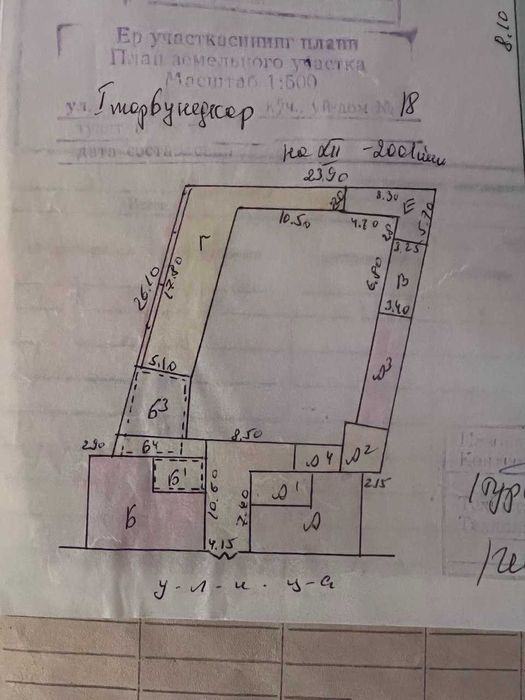 8.10
Ер участкасининг плани
План земельного участка
Масштаб 1:500
ул. I Чорвунедкор куч., уй-дом № 18
дата соста
на XII - 2001
23.90
8.30
Е
5.70
10.50
4.20
3.25
Г
26.10
17.80
6.80
В
3.40
А3
5.10
Б3
2.90
Б4
8.50
А4
А2
Б1
2.15
А1
10.60
7.80
Б
А
4.15
у-л-и-ц-а